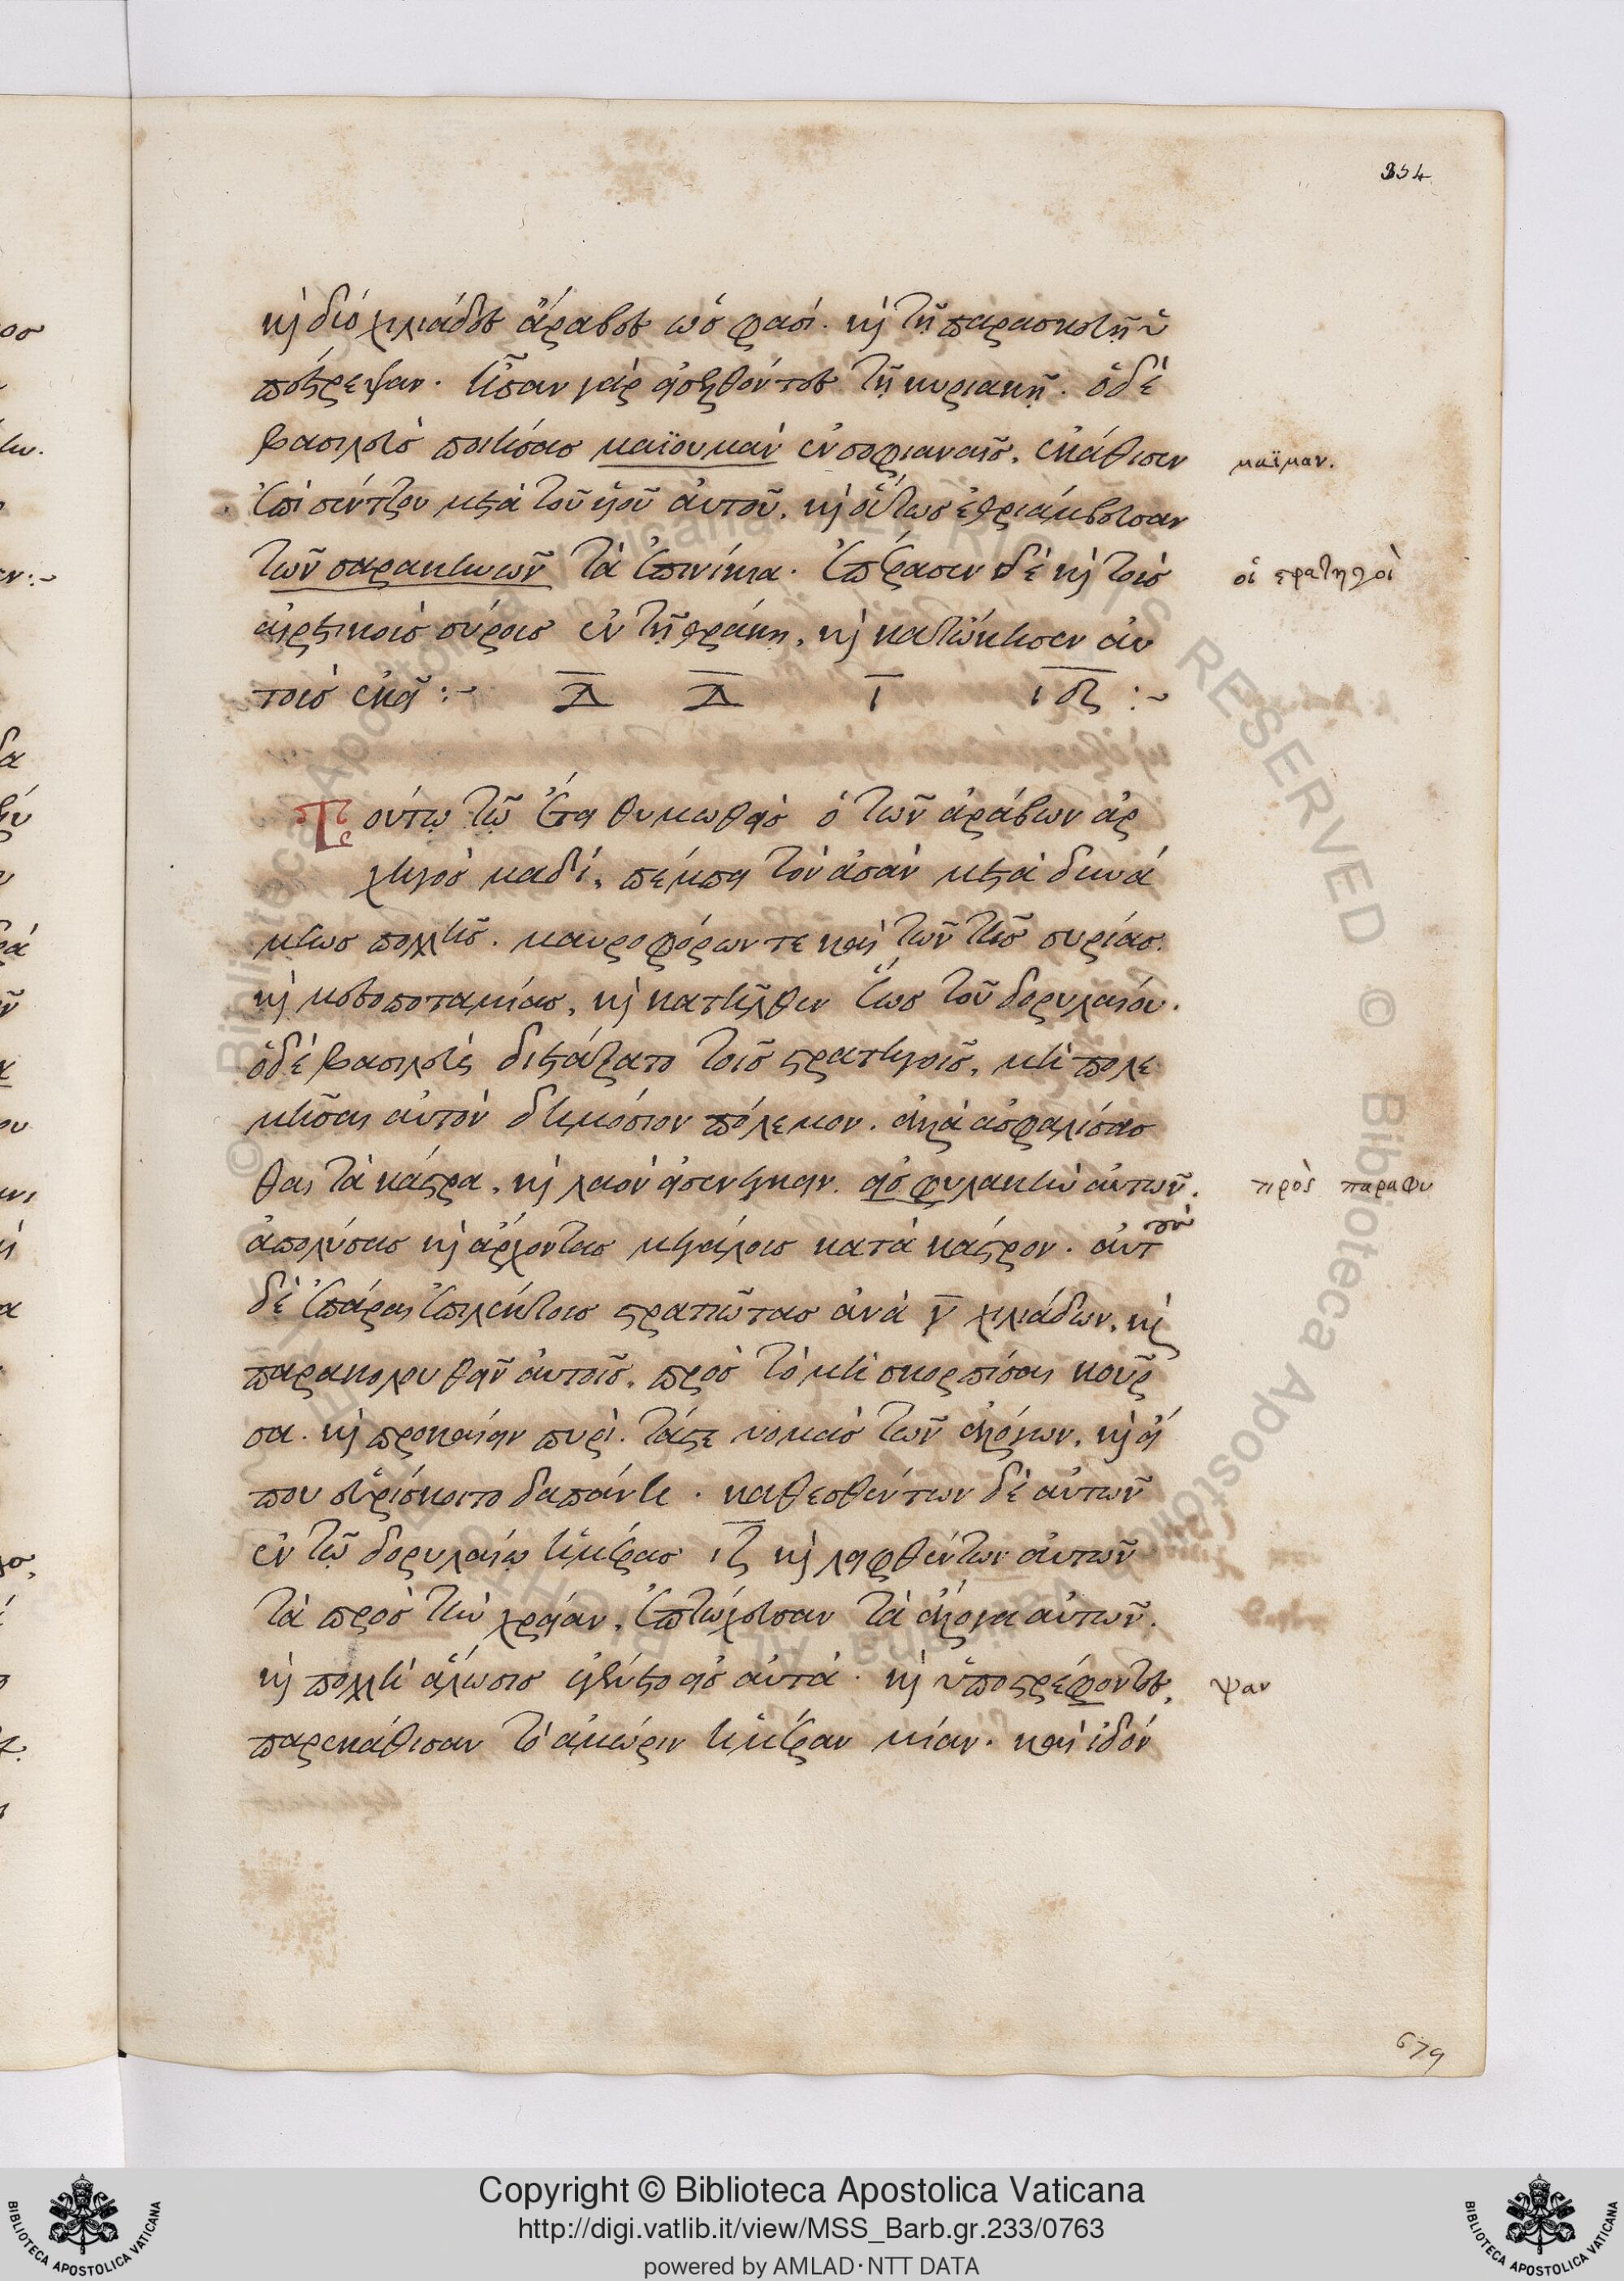 354
καὶ διό χιλιάδες ἄραβες ὡς φασί. καὶ τῇ παρασκευῇ ὑ
πέστρεψαν. ἦσαν γάρ εἰσελθόντες τῇ κυριακῇ. ὁ δὲ
βασιλεὺς ποιήσας μαϊουμὰν ἐν σοφιαναῖς, ἐκάθισεν μαϊμαν.
ἐπὶ σέντζου μετὰ τοῦ υἱοῦ αὐτοῦ, καὶ οὕτως ἐθριάμβευσαν
τῶν σαρακηνῶν τὰ ἐπινίκια. ἐπέρασεν δὲ καὶ τοὺς οἱ στρατηγοὶ
αἱρετικοὺς σύρους ἐν τῇ θράκῃ, καὶ κατῴκησεν αὐ
τοὺς ἐκεῖ :~ Δ Δ Ι ΙΔ :~
Τούτῳ τῷ ἔτει θυμωθεὶς ὁ τῶν ἀράβων ἀρ
χηγὸς μαδί, πέμπει τὸν ἀσὰν μετὰ δυνά
μεως πολλῆς. μαυροφόρων τε καὶ τῶν τῆς συρίας.
καὶ μεσοποταμίας, καὶ κατῆλθεν ἕως τοῦ δορυλαίου.
ὁ δὲ βασιλεὺς διετάξατο τοῖς στρατηγοῖς, μὴ πολε
μῆσαι αὐτὸν δημόσιον πόλεμον. ἀλλὰ ἀσφαλίσασ
θαι τὰ κάστρα, καὶ λαὸν εἰσενεγκεῖν. εἰς φυλακὴν αὐτῶν. πρὸς παραφυ
ἀπολύσας καὶ ἄρχοντας μεγάλους κατὰ κάστρον. αὐτ τοὺς
δὲ ἐπάραι ἐπιλέκτους στρατιῶτας ἀνὰ γ χιλιάδων, καὶ
παρακολουθεῖν αὐτοῖς, πρὸς τὸ μὴ σκορπίσαι κοῦρ
σα. καὶ προκαίειν πυρί. τάς τε νομὰς τῶν ἀλόγων, καὶ εἴ
που εὑρίσκοιτο δαπάνη. καθεσθέντων δὲ αὐτῶν
ἐν τῷ δορυλαίῳ ἡμέρας ιε καὶ λειφθέντων αὐτῶν
τὰ πρὸς τὴν χρείαν, ἐπτώχευσαν τὰ ἄλογα αὐτῶν.
καὶ πολλὴ ἅλωσις ἐγένετο εἰς αὐτά. καὶ ὑποστρέφοντες, ψαν
παρεκάθισαν τὸ ἀμώριν ἡμέραν μίαν. καὶ ἰδόν
679
© Biblioteca Apostolica Vaticana ALL RIGHTS RESERVED
Copyright © Biblioteca Apostolica Vaticana
http://digi.vatlib.it/view/MSS_Barb.gr.233/0763
powered by AMLAD·NTT DATA
BIBLIOTECA APOSTOLICA VATICANA
BIBLIOTECA APOSTOLICA VATICANA